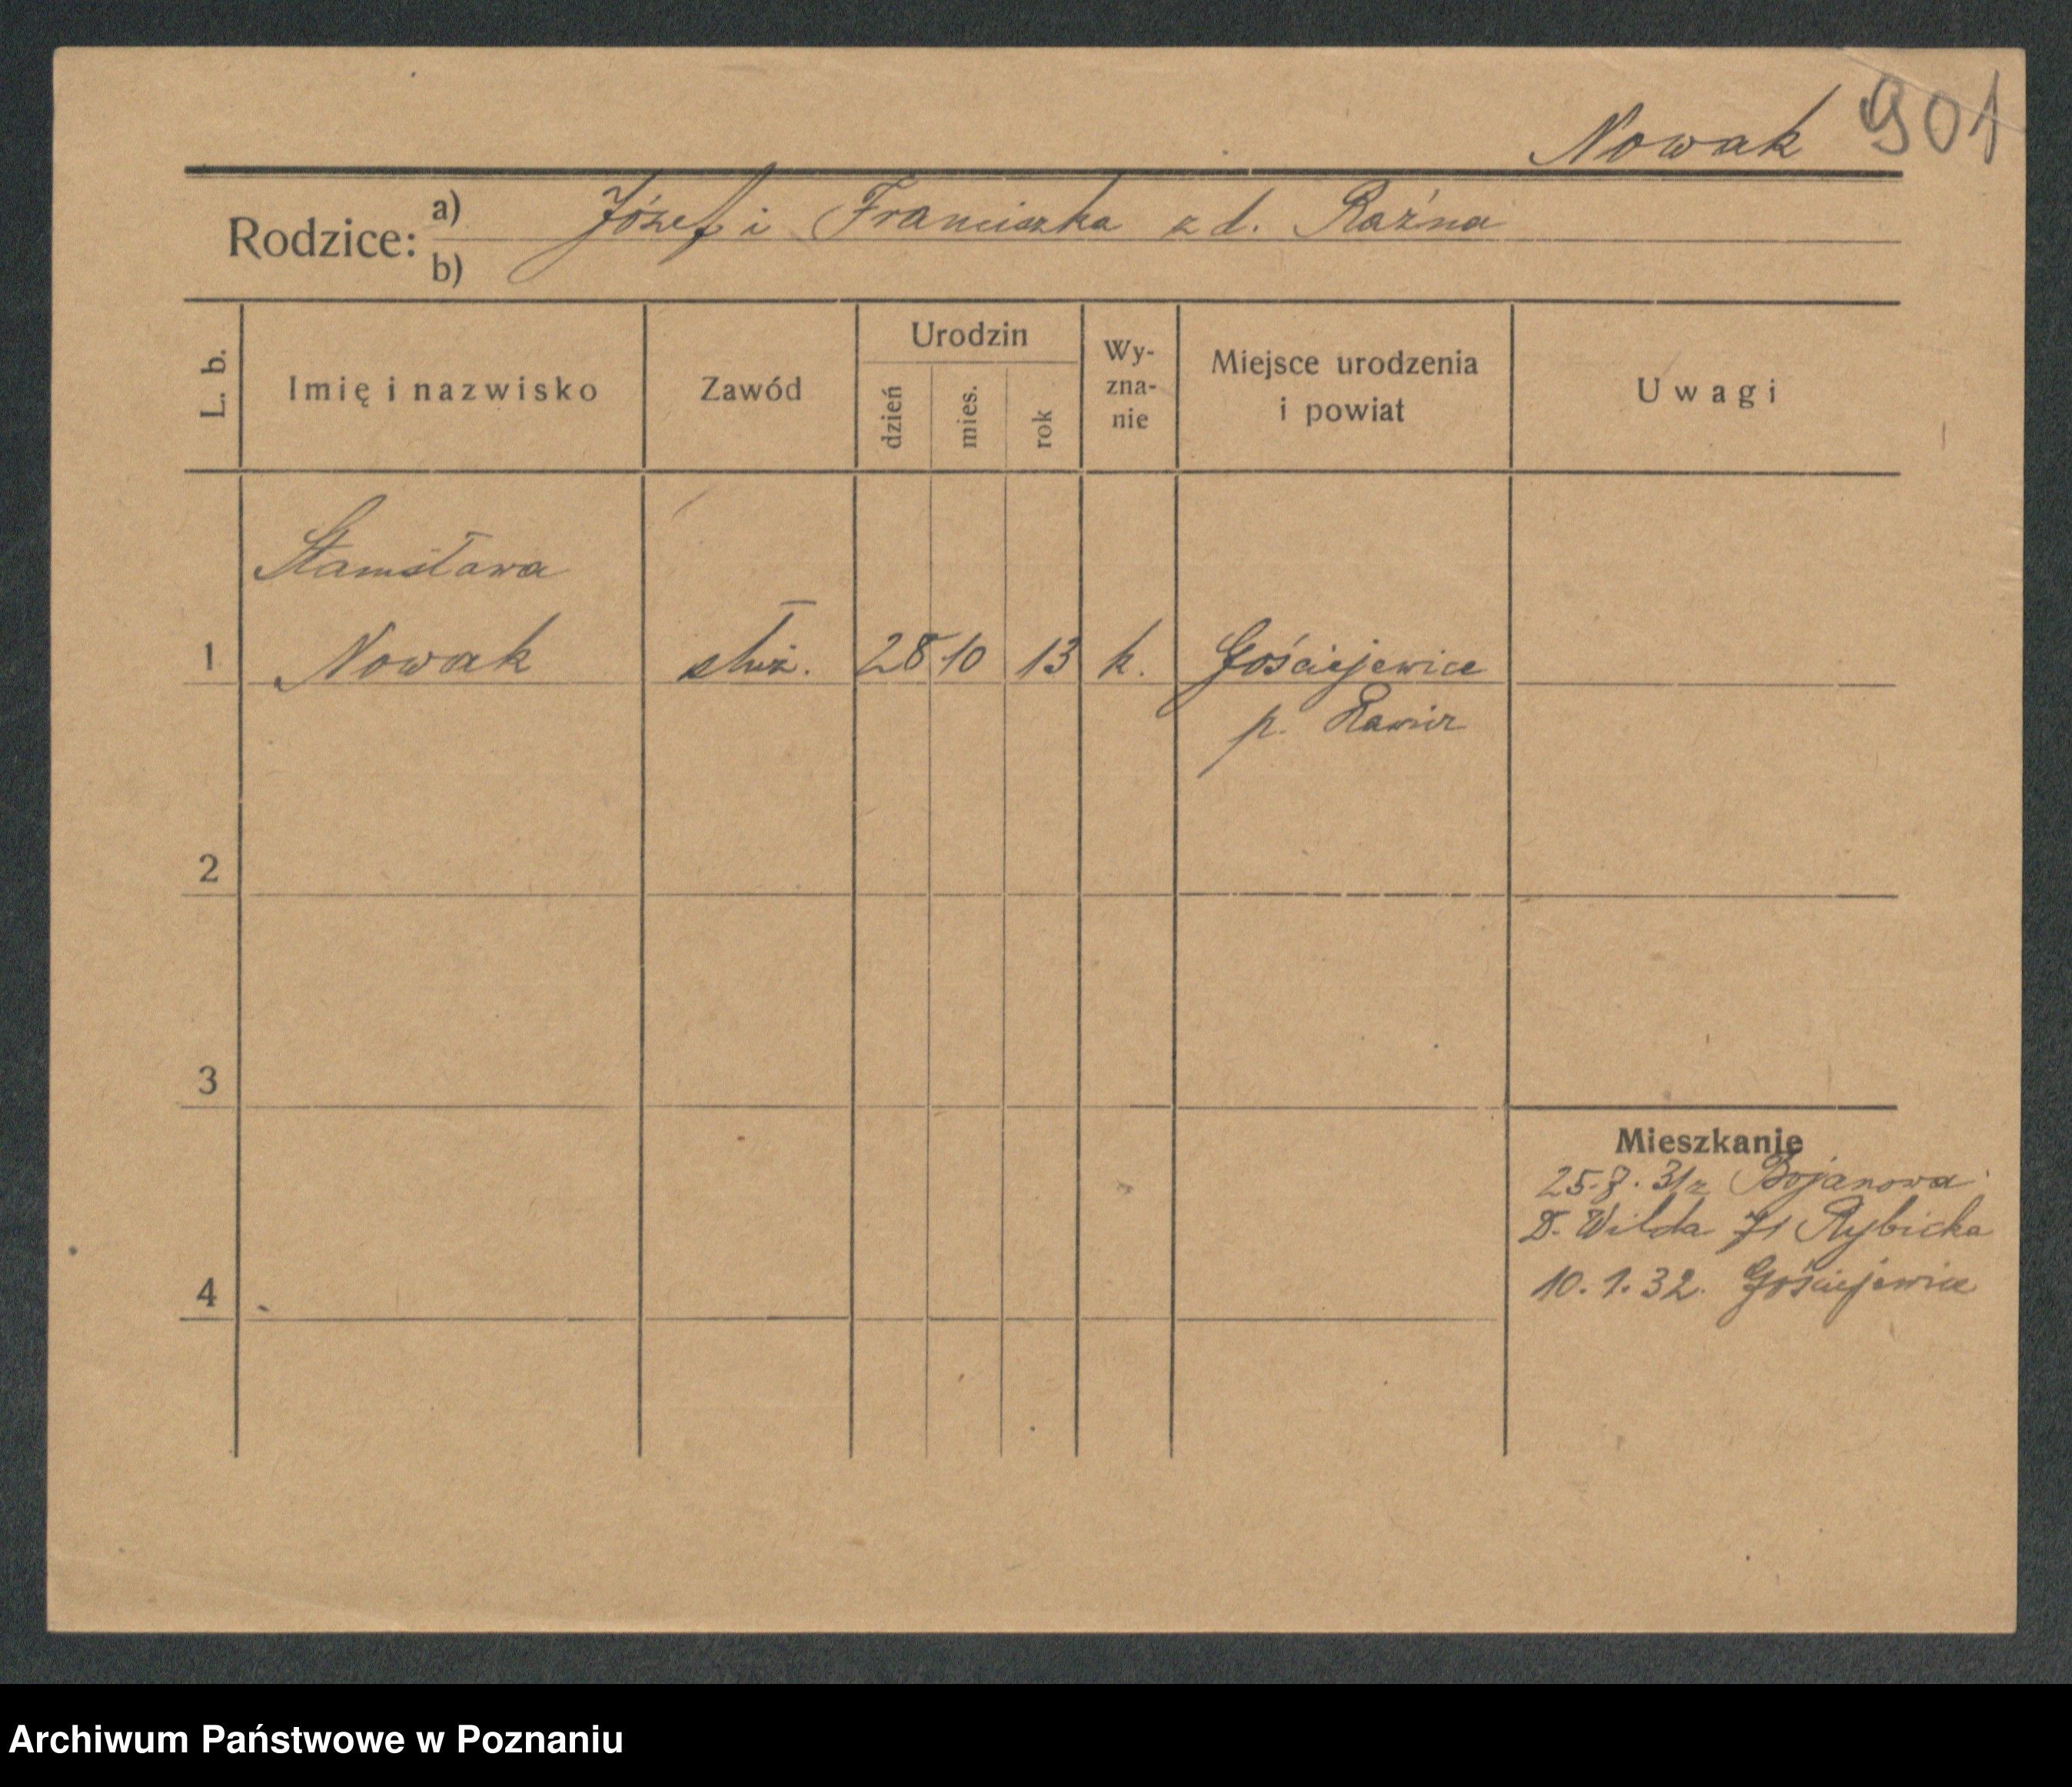 Nowak 901
Rodzice: a) Józef i Franciszka z d. Raźna
b)
L. b.
Imię i nazwisko
Zawód
Urodzin
dzień
mies.
rok
Wy-
zna-
nie
Miejsce urodzenia
i powiat
Uwagi
Stanisława
1 Nowak służ. 28 10 13 k. Gościejewice
p. Rawicz
2
3
4
Mieszkanie
25. 31 z Bojanowa
D. Wilda 71 Rybicka
10.1.32. Gościejewice
Archiwum Państwowe w Poznaniu